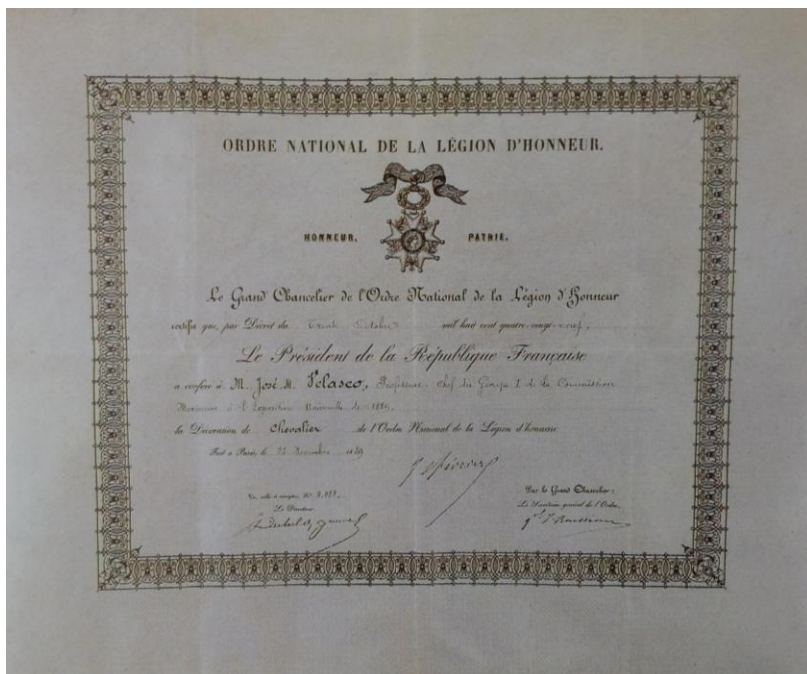 ORDRE NATIONAL DE LA LÉGION D'HONNEUR.
HONNEUR. PATRIE.
Le Grand Chancelier de l'Ordre National de la Légion d'Honneur
certifie que, par Décret du Trente Octobre mil huit cent quatre-vingt-neuf;
Le Président de la République Française
a conféré à M. José M. Velasco, Professeur. Chef du Groupe I de la Commission
Mexicaine à l'Exposition Universelle de 1889,
la Décoration de Chevalier de l'Ordre National de la Légion d'honneur
Fait à Paris, le Novembre 1889
Vu, scellé et enregistré, No
Le Directeur
Par le Grand Chancelier:
Le Secrétaire général de l'Ordre,